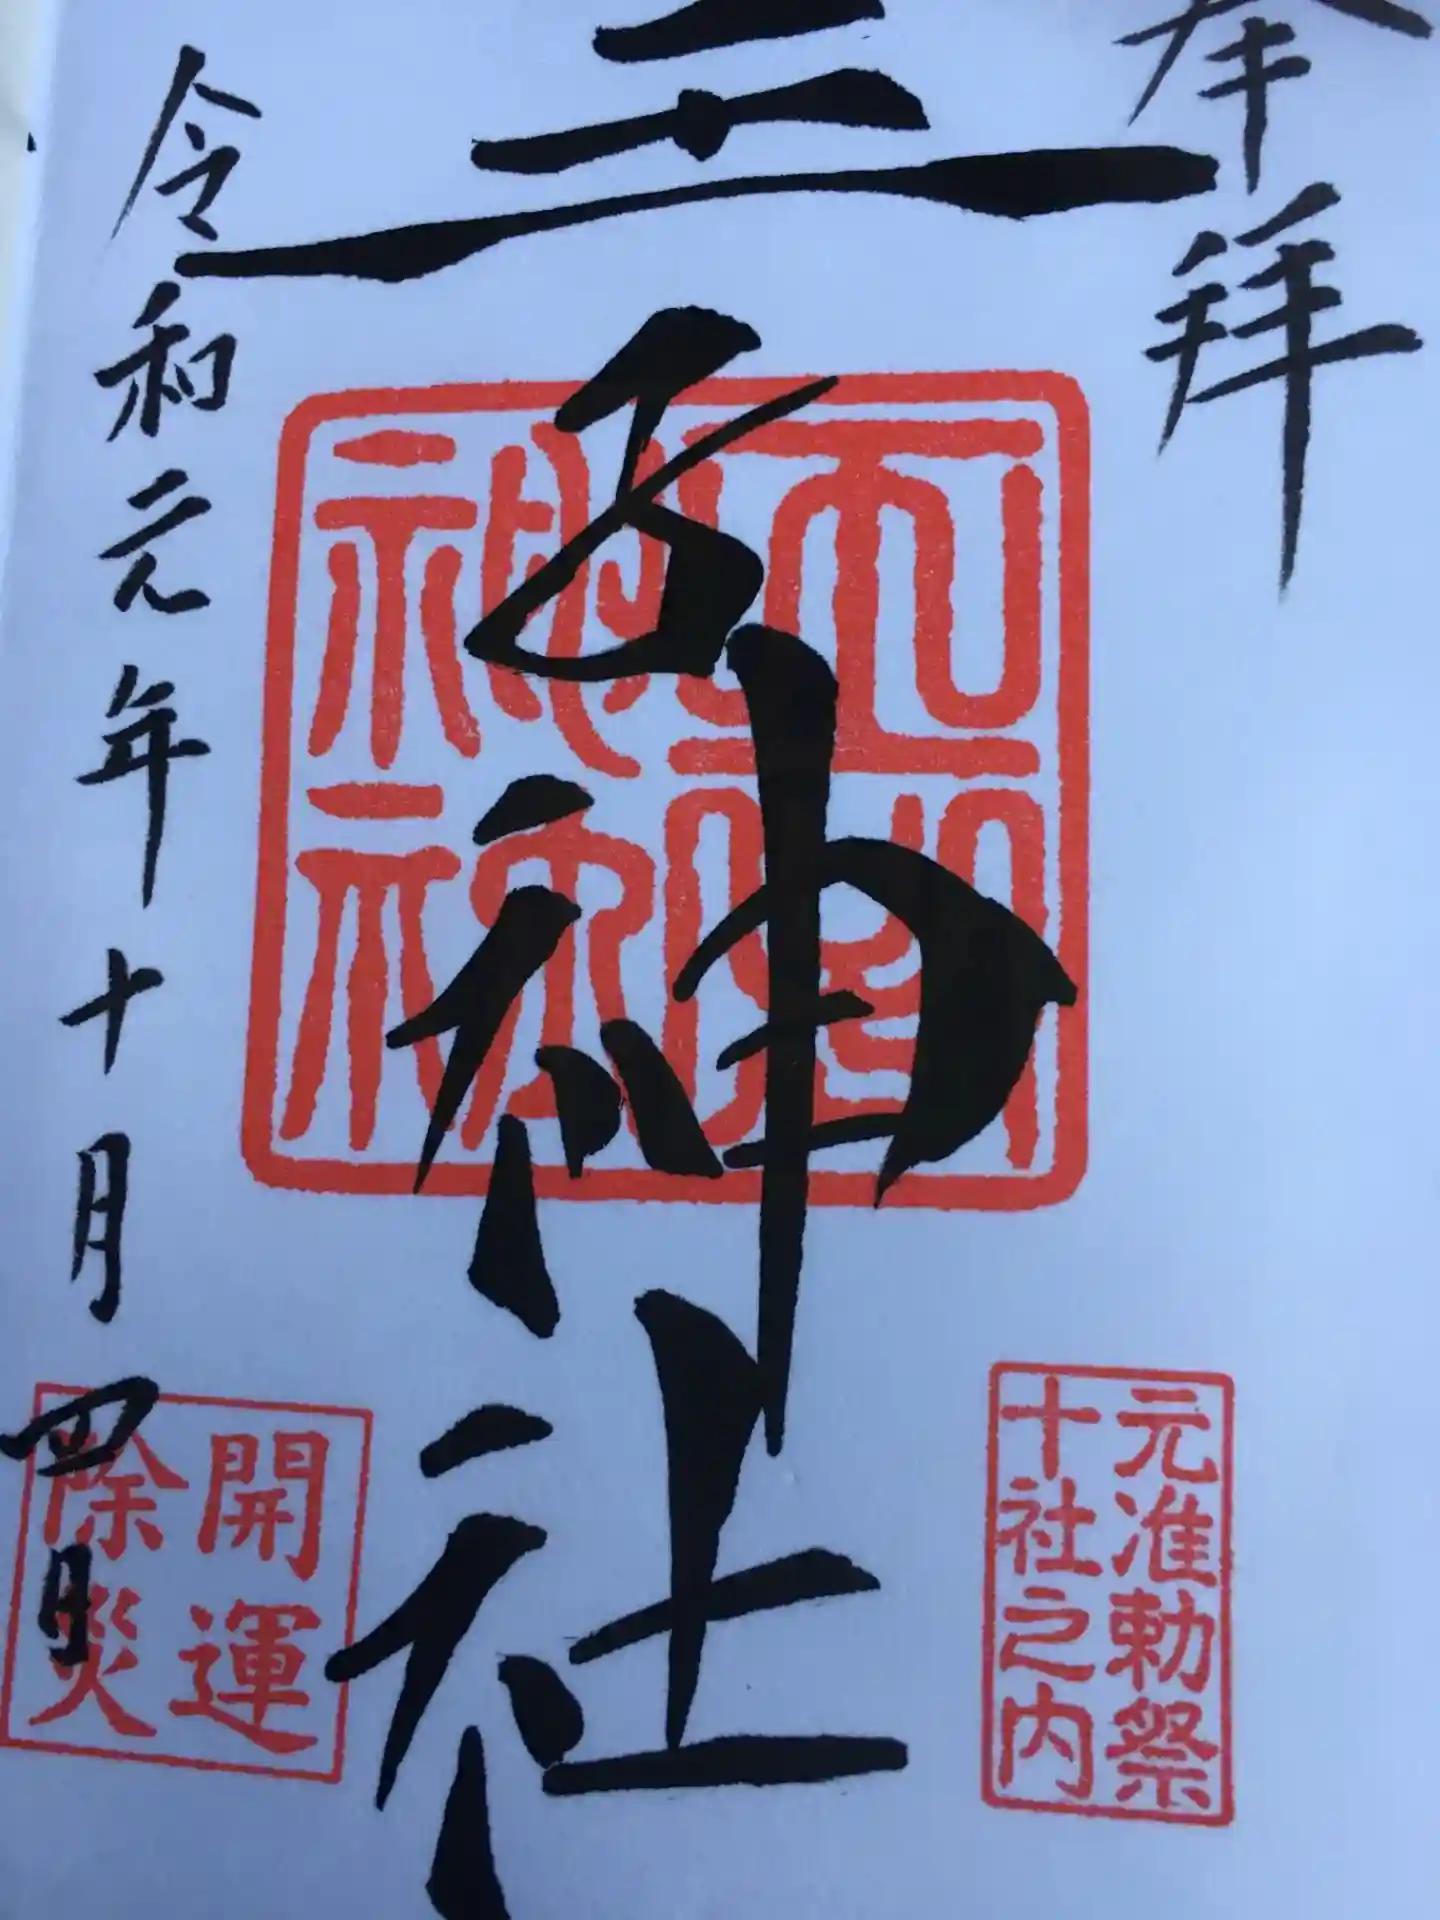 奉拝
元准勅祭
十社之内
王子神社
令和元年十月四日
開運
除災